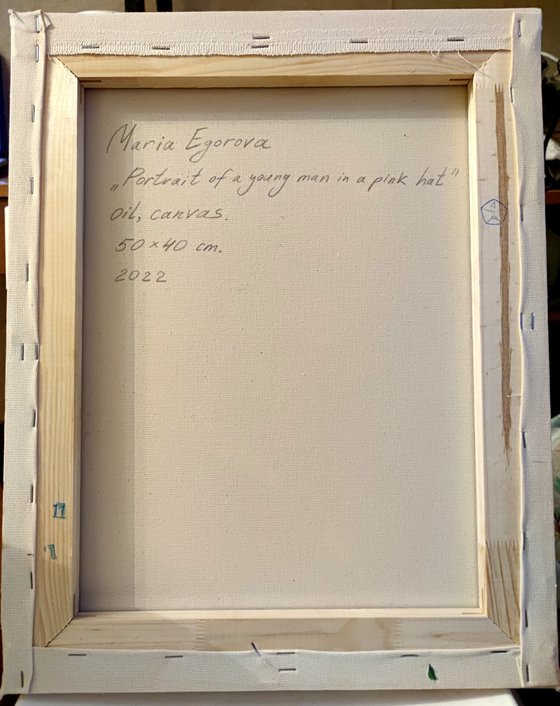 Maria Egorova
„Portrait of a young man in a pink hat"
oil, canvas.
50×40 cm.
2022
11
1